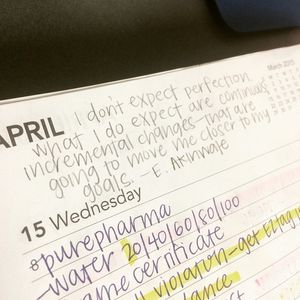 March 2015
APRIL
I don't expect perfection
what I do expect are continuous
incremental changes - that are
going to move me closer to my
goals. - E. Akinwale
15 Wednesday
purepharma
water 20/40/60/80/100
name certificate
violation - get